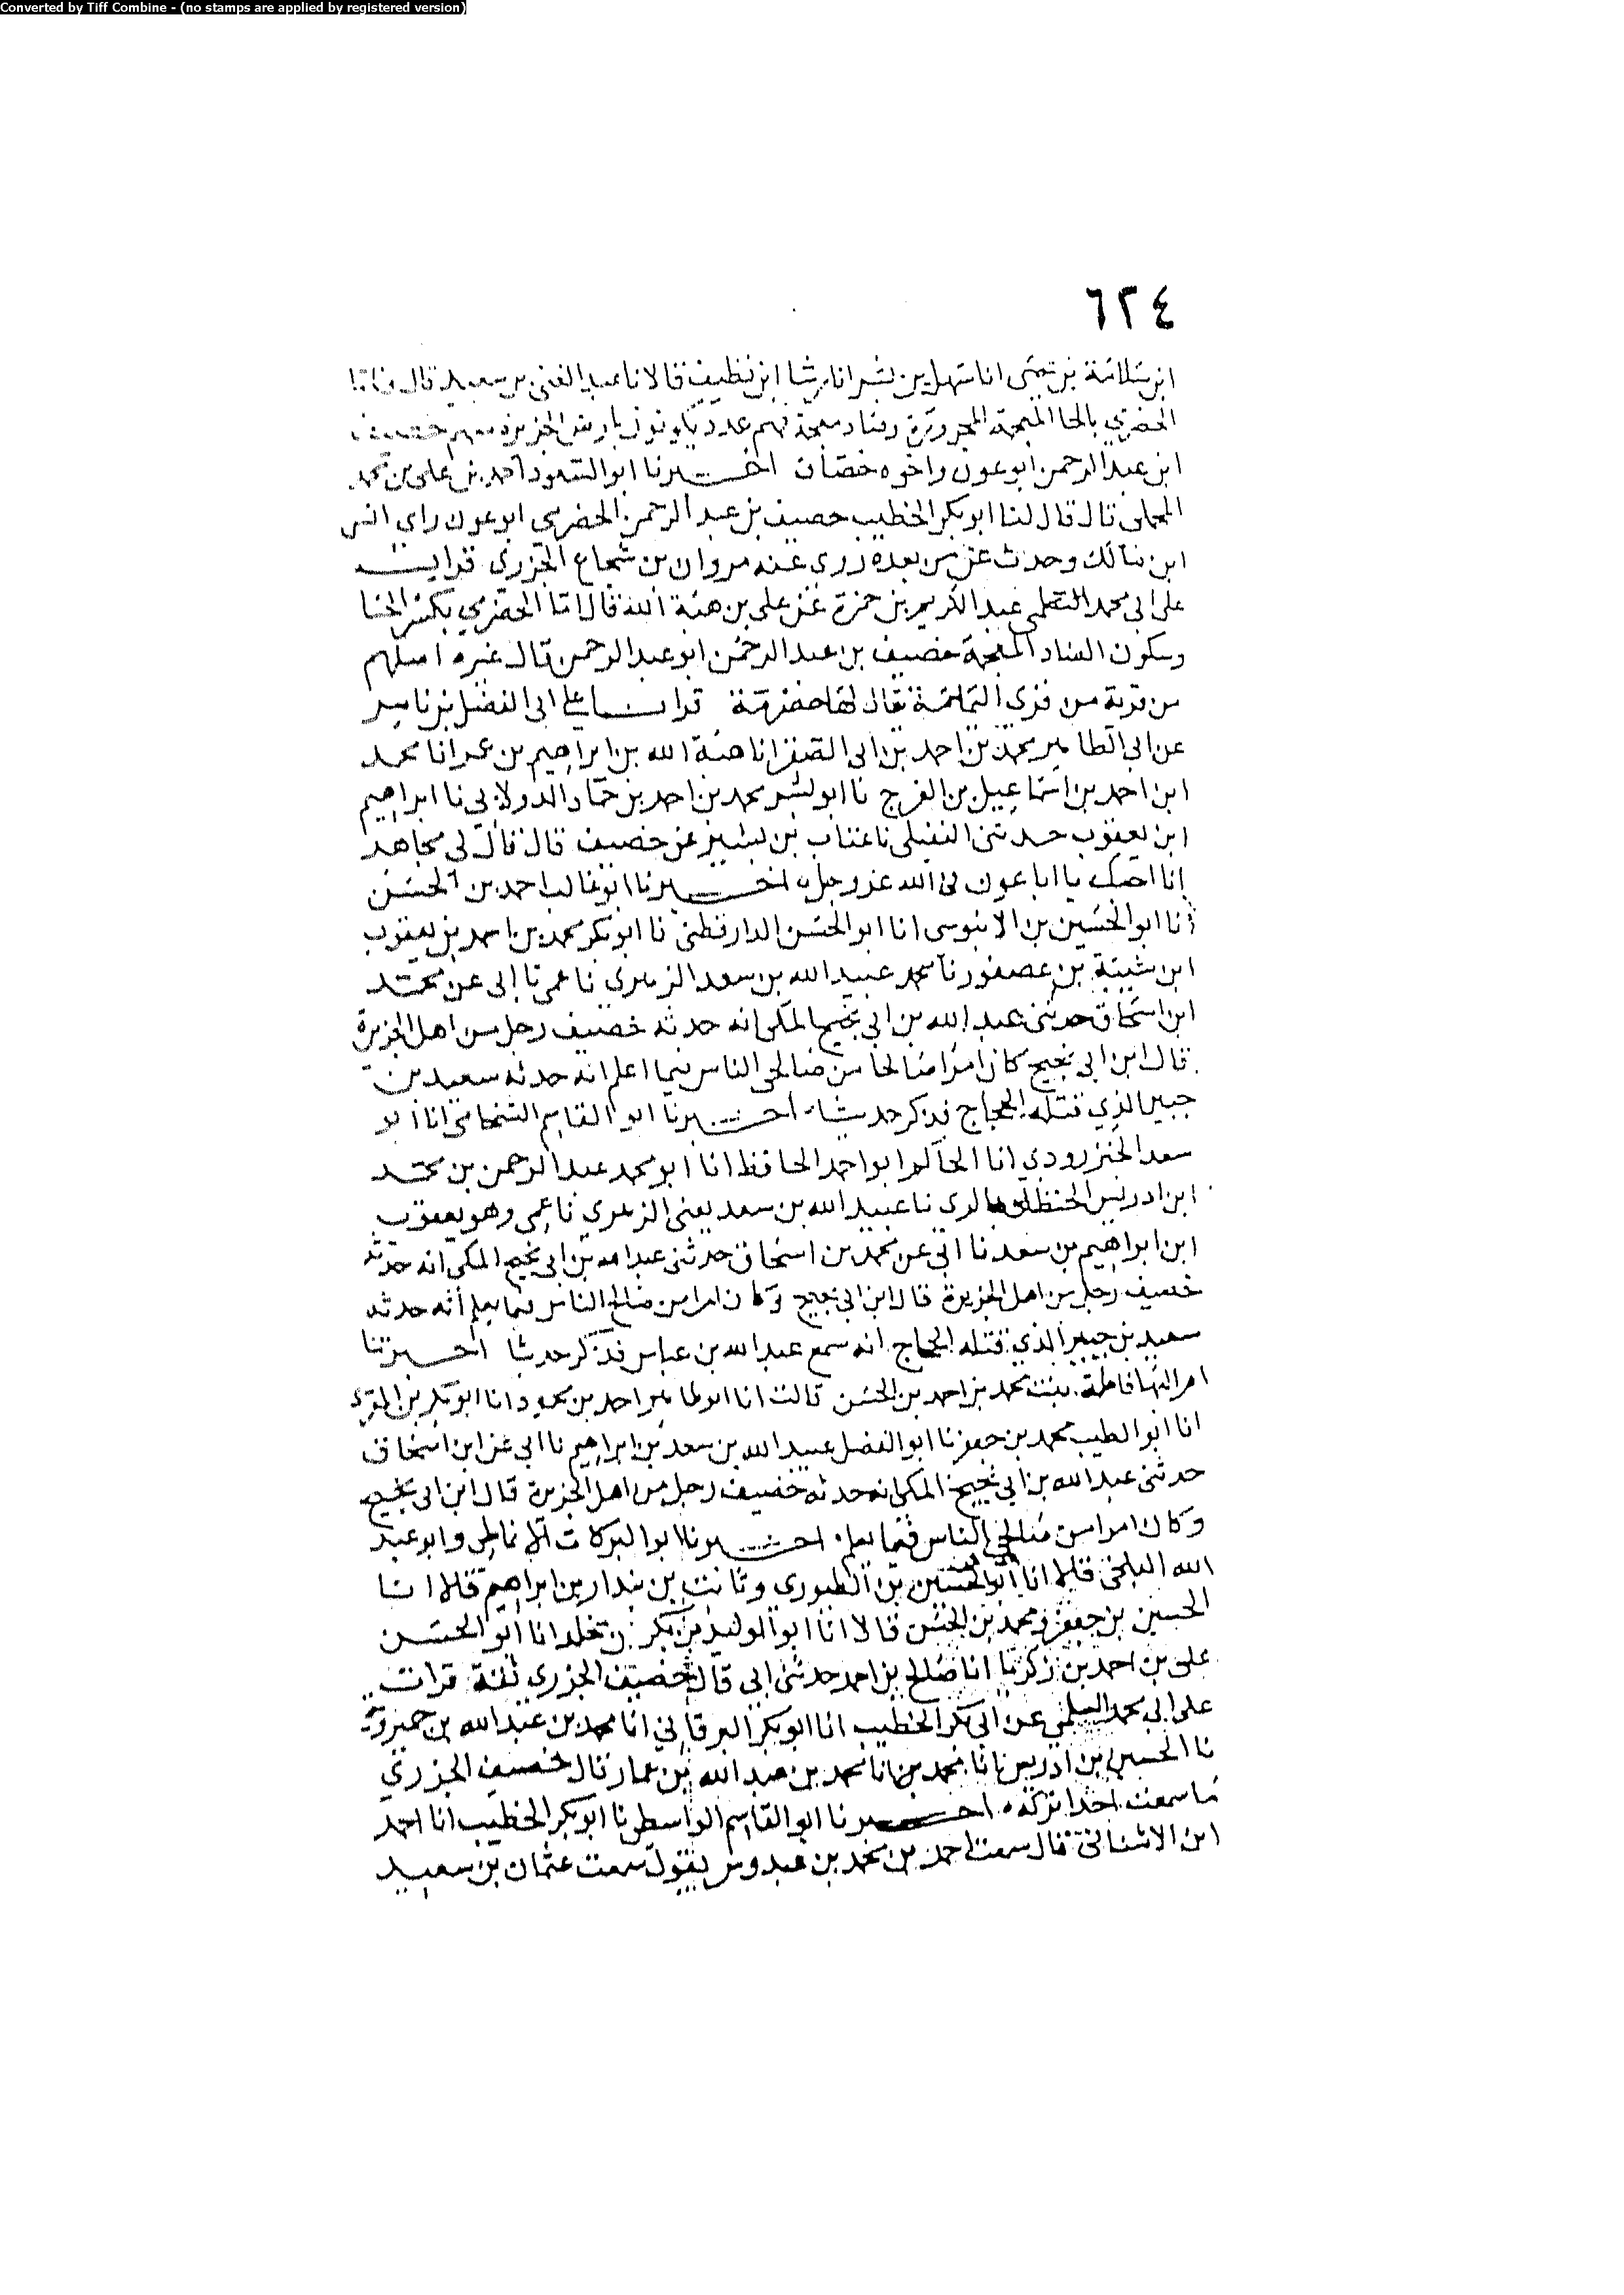 Converted by Tiff Combine - (no stamps are applied by registered version)
٦٢٤
ابن سلامة بن يحيى انا سهل بن بشر انا رشا ابن نظيف قالا نا عبد الغني بن سعيد قال واما
الخضري بالخا المعجمة وضاد معجمة فهم عدد يكونون بارض الجزيرة منهم خصيف
ابن عبد الرحمن ابو عون واخوه خصاف اخبرنا ابو السعود احمد بن علي بن محمد
المجلى قال قال لنا ابو بكر الخطيب خصيف بن عبد الرحمن الخضرمي ابو عون راي انس
ابن مالك وحدث عن من بعده روى عنه مروان بن شجاع الجزري قرات
على ابي محمد السلمي عبد الكريم بن حمزة عن علي بن هبة الله قال اما الخضرمي بكسر الخا
وسكون الضاد المعجمة خصيف بن عبد الرحمن ابو عبد الرحمن قال غيره اصلهم
من قرية من قرى اليمامة يقال لها خضرمة قرانا على ابي الفضل بن ناصر
عن ابي الطاهر محمد بن احمد بن ابي الصقر انا هبة الله بن ابراهيم بن عمر انا محمد
ابن احمد بن اسماعيل بن الفرج نا ابو بشر محمد بن احمد بن حماد الدولابي نا ابراهيم
ابن يعقوب حدثني النفيلي نا عتاب بن بشير عن خصيف قال قال لي مجاهد
انا احبك يا ابا عون في الله عز وجل اخبرنا ابو غالب احمد بن الحسن
انا ابو الحسين بن الابنوسي انا ابو الحسن الدارقطني نا ابو بكر محمد بن احمد بن يعقوب
ابن شيبة بن عصفور نا محمد عبيد الله بن سعد الزهري نا عمي نا ابي عن محمد
ابن اسحاق حدثني عبد الله بن ابي نجيح المكي انه حدثه خصيف رجل من اهل الجزيرة
قال ابن ابي نجيح كان امرا صالحا من صالحي الناس فيما اعلم انه حدثه سعيد بن
جبير الذي قتله الحجاج فذكر حديثا اخبرنا ابو القاسم الشحامي انا ابو
سعد الجنزرودي انا الحاكم ابو احمد الحافظ انا ابو محمد عبد الرحمن بن محمد
ابن ادريس الحنظلي بالري نا عبيد الله بن سعد يعني الزهري نا عمي وهو يعقوب
ابن ابراهيم بن سعد نا ابي عن محمد بن اسحاق حدثني عبد الله بن ابي نجيح المكي انه حدثه
خصيف رجل من اهل الجزيرة قال ابن ابي نجيح وكان امرا من صالح الناس فيما يعلم انه حدثه
سعيد بن جبير الذي قتله الحجاج انه سمع عبد الله بن عباس فذكر حديثا اخبرتنا
ام البها فاطمة بنت محمد بن احمد بن الحسن قالت انا ابو طاهر احمد بن محمود انا ابو بكر بن المقرئ
انا ابو الطيب محمد بن جعفر نا ابو الفضل عبيد الله بن سعد بن ابراهيم نا ابي عن ابن اسحاق
حدثني عبد الله بن ابي نجيح المكي انه حدثه خصيف رجل من اهل الجزيرة قال ابن ابي نجيح
وكان امرا من صالحي الناس فيما يعلم اخبرنا ابو البركات الانماطي وابو عبد
الله البلخي قالا انا ابو الحسين بن الطيوري وثابت بن بندار بن ابراهيم قالا انا
الحسين بن جعفر ومحمد بن الحسن قالا انا ابو الوليد بن بكر بن مخلد انا ابو الحسن
علي بن احمد بن زكريا انا صالح بن احمد حدثني ابي قال خصيف الجزري ثقة قرات
على ابي محمد السلمي عن ابي بكر الخطيب انا ابو بكر البرقاني انا محمد بن عبد الله بن خميرويه
نا الحسين بن ادريس انا محمد بن انا محمد بن عبد الله بن عمار قال خصيف الجزري
ما سمعت احدا تركه اخبرنا ابو القاسم الواسطي نا ابو بكر الخطيب انا احمد
ابن الاشناني قال سمعت احمد بن محمد بن عبدوس يقول سمعت عثمان بن سعيد